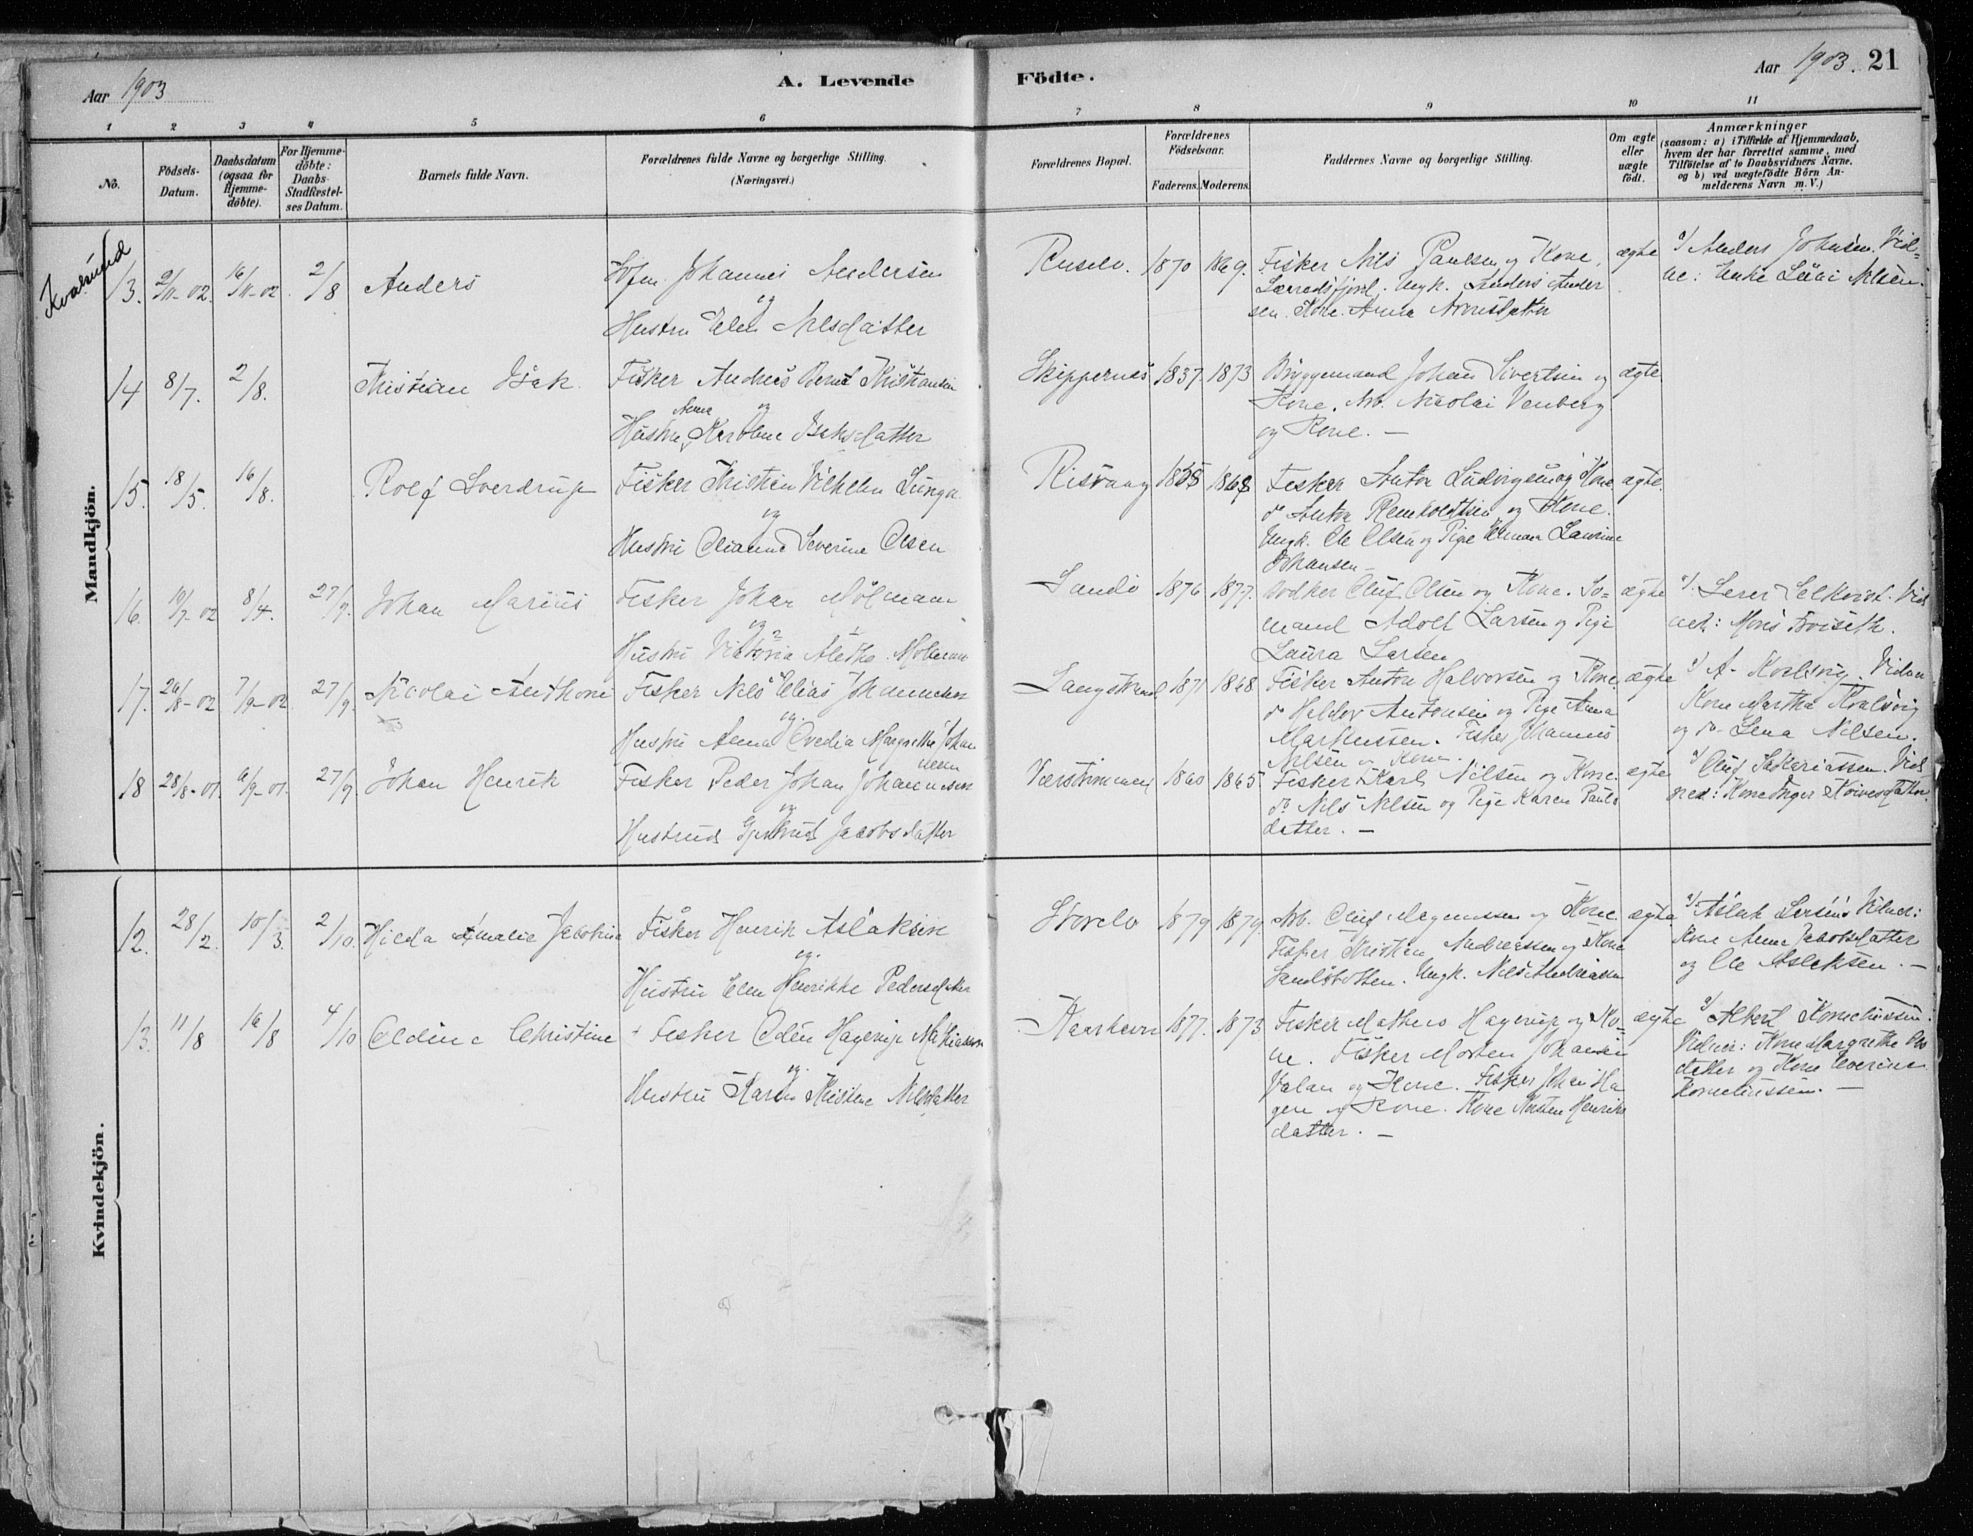 Aar 1903
A. Levende
Födte.
Aar 1903. 21
1 2 3 4 5 6 7 8 9 10 11
No.
Födsels-
Datum.
Daabsdatum
(ogsaa for
Hjemme-
döbte).
For Hjemme-
döbte:
Daabs-
Stadfæstel-
ses Datum.
Barnets fulde Navn.
Forældrenes fulde Navne og borgerlige Stilling.
(Næringsvei.)
Forældrenes Bopæl.
Forældrenes
Födselsaar.
Faderens. Moderens.
Faddernes Navne og borgerlige Stilling.
Om ægte
eller
uægte
födt.
Anmærkninger
(saasom: a) i Tilfælde af Hjemmedaab,
hvem der har forrettet samme, med
Tilföielse af to Daabsvidners Navne.
og b) ved uægtefödte Börn An-
melderens Navn m. V.)
Kvalsund
Mandkjön.
13. 2/11-02. 16/11-02. 2/8 Anders
Johannes Andersen
og
Hustru Elen Nilsdatter
1870 1869. Fisker Nils Paulsen og Kone,
Ungk. Anders Ander
sen. Kone Anna
ægte
a/ Anders Johnsen. Vid-
ne: Enke Nilsen.
14 8/7. 2/8. Kristian Isak.
Fisker Andreas Bernt Kristiansen
Anna og
Hustru Karoline Isaksdatter
Skippernes 1837. 1873 Bryggemand Johan Sivertsen og
Kone. Arb. Nicolai Venberg
og Kone. —
ægte
15. 18/5. 16/8. Rolf Sverdrup
Fisker Kristian Vilhelm
og
Hustru Severine Olsen
Risvaag 1868 Fisker Anton Ludvigsen og Kone
do Anton Reinholdtsen og Kone.
Ungk. Ole Olsen og Pige Laurine
Johansen —
ægte.
16. 10/7-02 8/4. 27/9. Johan Marius
Fisker Johan
og
Hustru
Sandö 1876 1877. Oluf Olsen og Kone. Sö-
mand Adolf Larsen og Pige
Laura Larsen
ægte
17. 26/8-02 7/9-02 27/9. Nicolai Anthone
Fisker Nils Elias Johannesen
og
Hustru Anna Ovedia Margrethe Johan
nesen
Langstrand 1871 1868 Fisker Anton Halvorsen og Kone
do Haldor Antonsen og Pige Anna
Markussen. Fisker Johannes
Nilsen og Kone.
ægte
a/ A. Kvalsvig. Vidner
Kone Martha Kvalsvig
og do Lena Nilsen.
18 28/8-01. 6/9-01. 27/9 Johan Henrik
Fisker Peder Johan Johannesen
og
Hustrud Gjertrud Jacobsdatter
1860 1865 Fisker Karl Nilsen og Kone.
do Nils Nilsen og Pige Karen Pauls
datter. —
ægte
a/ Oluf Sakariassen. Vid
Kvindekjön.
12. 28/2. 10/3. 2/10. Hilda Amalie Jacobine
Fisker Henrik Aslaksen
og.
Hustru Elen Henrikke Pedersdatter
Storelv 1879 1879. Arb. Oluf Magnussen og Kone.
Fisker Kristian Andreassen og Kone
Ungk. Nils Andreassen
ægte.
a/ Aslak Larsen Vidner:
Kone Anna Jacobsdatter
og Ole Aslaksen. —
13. 11/8 16/8 4/10 Oldine Christine
Fisker Odin Hagerup Mathiasen
og.
Hustru Karen Kristine Nilsdatter
1877. 1873 Fisker Matheus Hagerup og Ko-
ne. Fisker Morten Johansen
og Kone. Fisker Johan Ha
gen og Kone. Kone Henriks
datter. —
ægte
a/ Albert Korneliussen.
Vidner: Kone Margrethe
datter og Kone Severine
Korneliussen. —